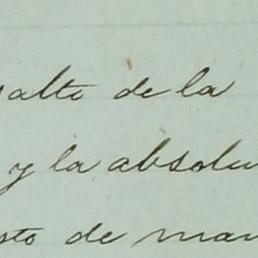 salte de la
y la absolu
sto de man